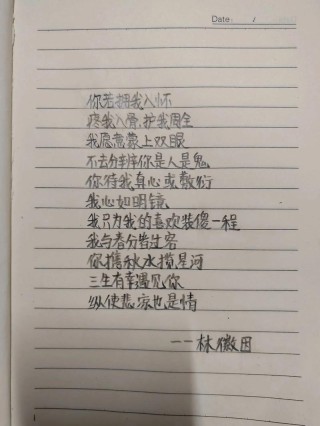 Date: /
你若拥我入怀
疼我入骨,护我周全
我愿意蒙上双眼
不去分辨你是人是鬼
你待我真心或敷衍
我心如明镜
我只为我的喜欢装傻一程
我与春风皆过客
你携秋水揽星河
三生有幸遇见你
纵使悲凉也是情
——林徽因